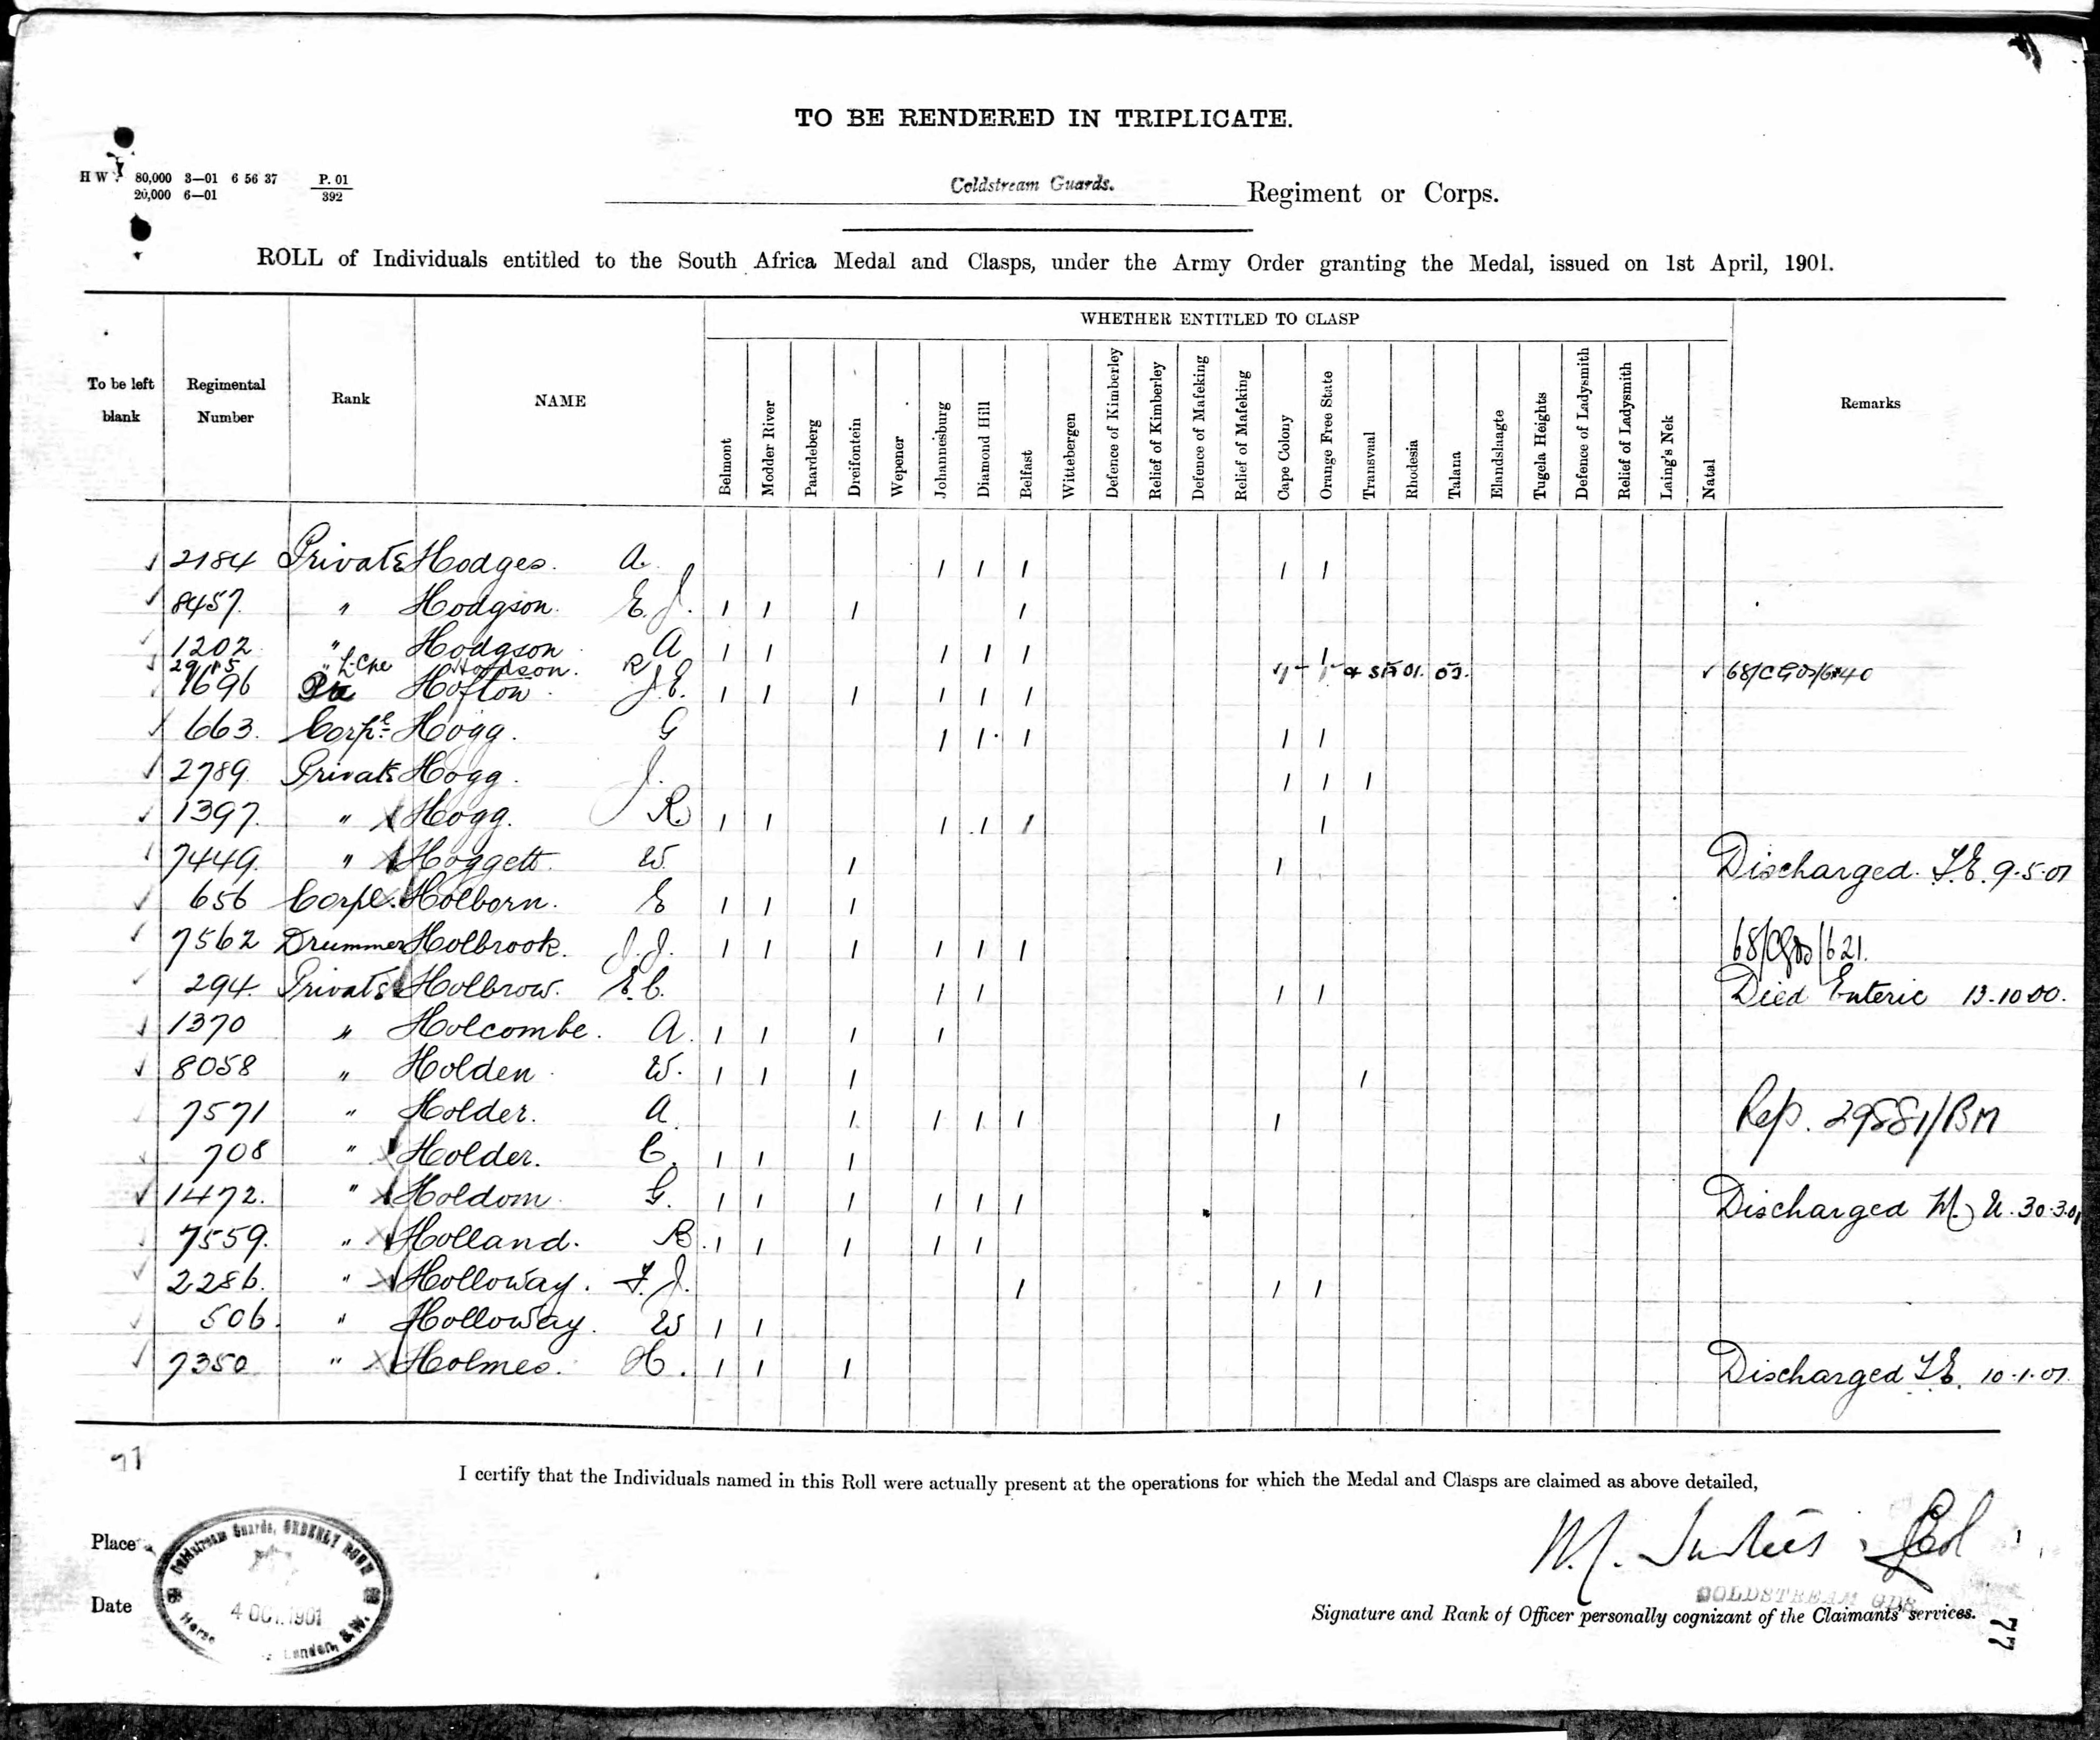 TO BE RENDERED IN TRIPLICATE.
H W 80,000 3—01 6 56 37 P. 01
20,000 6—01 392
Coldstream Guards. Regiment or Corps.
ROLL of Individuals entitled to the South Africa Medal and Clasps, under the Army Order granting the Medal, issued on 1st April, 1901.
WHETHER ENTITLED TO CLASP
To be left blank Regimental Number Rank NAME Belmont Modder River Paardeberg Dreifontein Wepener Johannesburg Diamond Hill Belfast Wittebergen Defence of Kimberley Relief of Kimberley Defence of Mafeking Relief of Mafeking Cape Colony Orange Free State Transvaal Rhodesia Talana Elandslaagte Tugela Heights Defence of Ladysmith Relief of Ladysmith Laing's Nek Natal Remarks
✓ 2184 Private Hodges. A. 1 1 1 1 1
✓ 8457. " Hodgson. E. J. 1 1 1 1
✓ 1202 " Hodgson A 1 1 1 1 1 1
✓ " L-Cpe Hodgson. R 1 1 & SA 01. 02. ✓
✓ 1696 Pte Hofton. J. E. 1 1 1 1 1 1
✓ 663. Corpl Hogg. G 1 1 1 1 1
✓ 2789. Private Hogg. J. 1 1 1
✓ 1397. " X Hogg. R. 1 1 1 1 1 1
✓ 7449. " X Hoggett. W. 1 1 Discharged. T.E. 9.5.01
✓ 656 Corpl. Holborn. E 1 1 1
✓ 7562 Drummer Holbrook. J. J. 1 1 1 1 1 1 68/CGds/621.
✓ 294. Private Holbrow. E. C. 1 1 1 1 Died Enteric 13-10 00.
✓ 1370 " Holcombe. A. 1 1 1 1
✓ 8058 " Holden. W. 1 1 1 1
✓ 7571 " Holder. A. 1 1 1 1 1 Rep. 29881/BM
✓ 708 " X Holder. C. 1 1 1
✓ 1472. " X Holdom. G. 1 1 1 1 1 1 Discharged M. U. 30.3.01
✓ 7559. " X Holland. B. 1 1 1 1 1
✓ 2286. " X Holloway. F. J. 1 1 1
✓ 506. " Holloway. W 1 1
✓ 7350 " X Holmes. H. 1 1 1 Discharged T.E. 10.1.01.
77
I certify that the Individuals named in this Roll were actually present at the operations for which the Medal and Clasps are claimed as above detailed,
Place
Coldstream Guards, ORDERLY ROOM
Date
4 OCT. 1901
Horse London, S.W.
COLDSTREAM GDS
Signature and Rank of Officer personally cognizant of the Claimants' services.
77